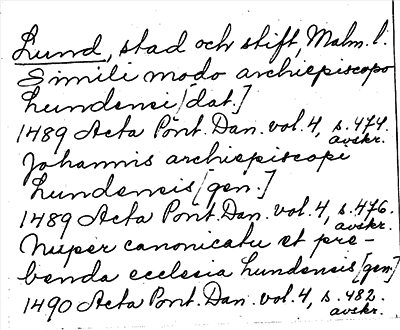 Lund, stad och stift, Malm. l.
Simili modo archiepiscopo
lundensi [dat.]
1489 Acta Pont. Dan. vol. 4, s. 474.
avskr.
Johannis archiepiscopi
lundensis [gen.]
1489 Acta Pont. Dan. vol. 4, s. 476.
avskr.
Nuper canonicatu et pre-
benda ecclesia lundensis [gen]
1490 Acta Pont. Dan. vol. 4, s. 482.
avskr.